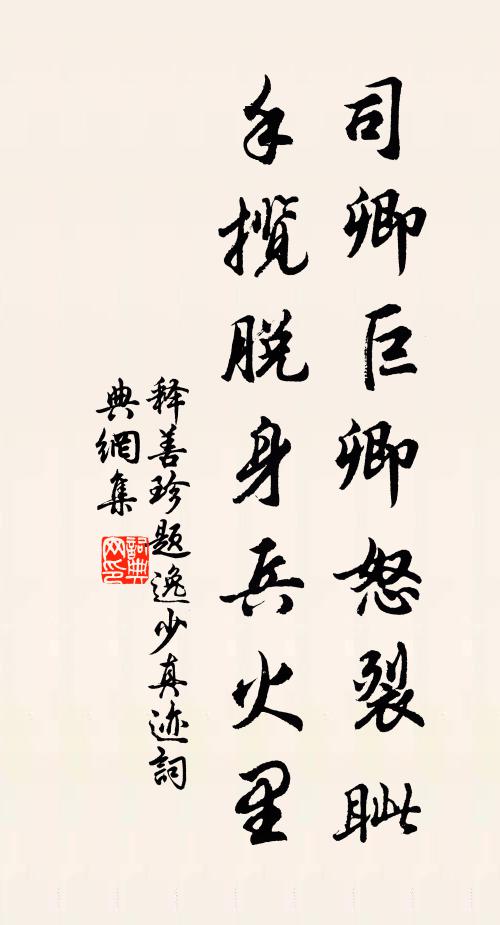 司卿巨卿怒裂眦
手揽脱身兵火里
释善珍题逸少真迹詞
典網集
詞典網印